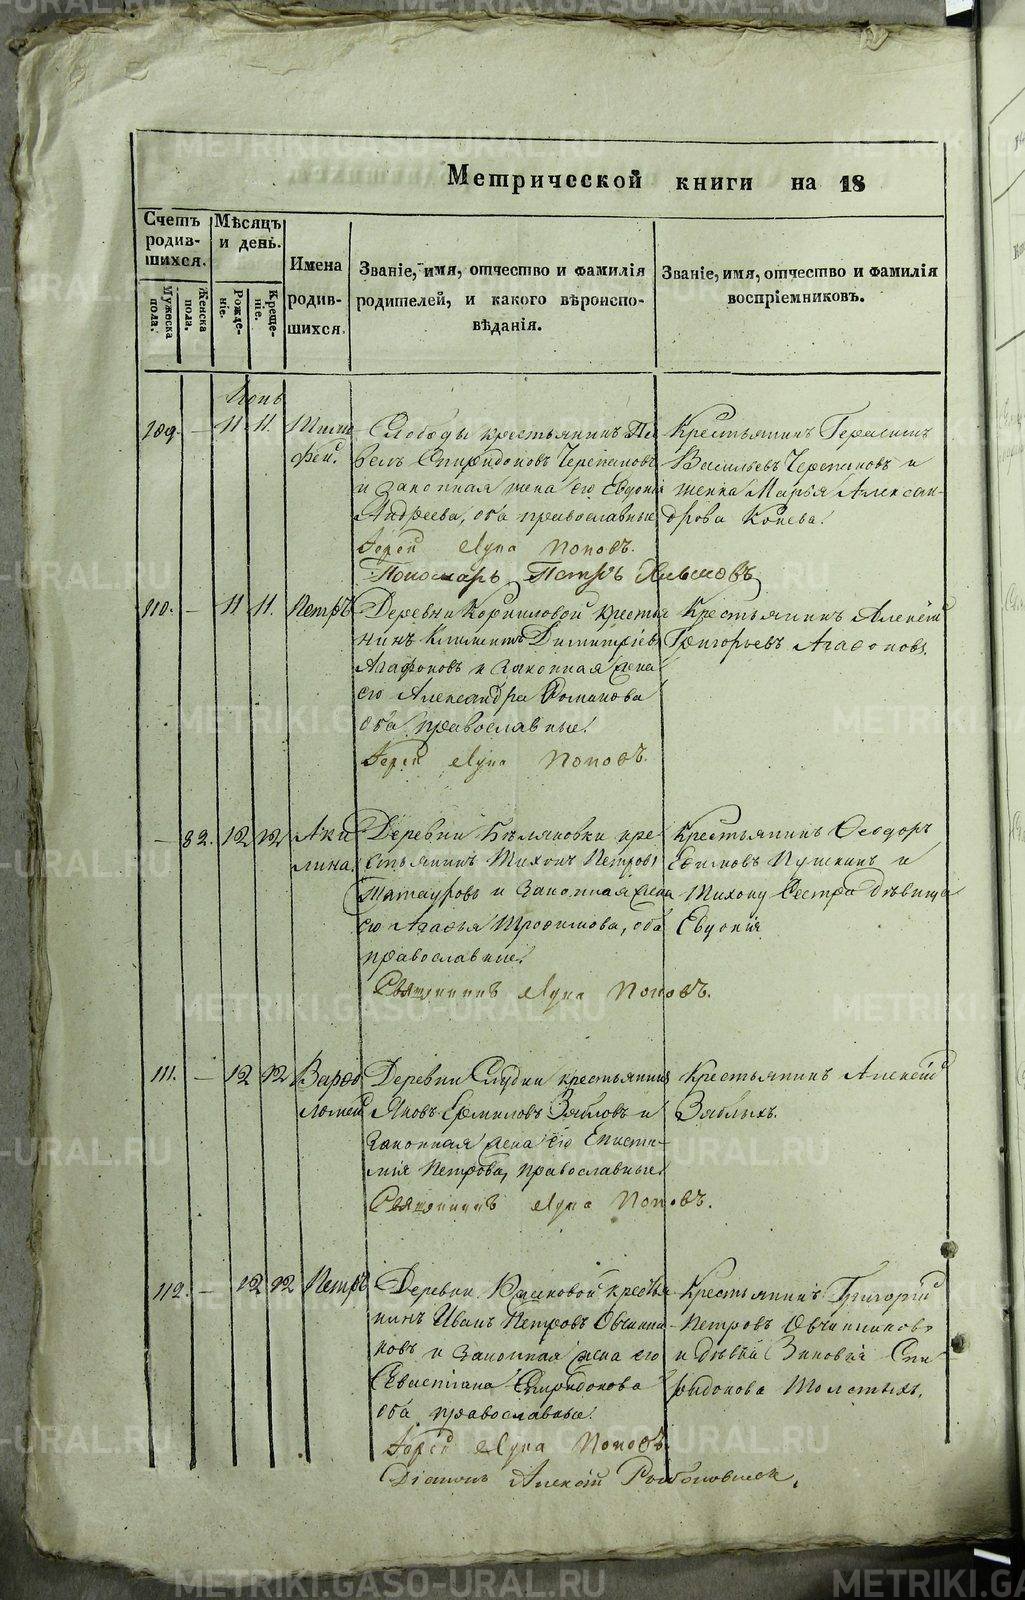 Метрической книги на 18
Счетъ родив-шихся.
Мужеска пола.
Женска пола.
Мѣсяцъ и день.
Рожде-ніе.
Креще-ніе.
Имена родив-шихся.
Званіе, имя, отчество и фамилія родителей, и какого вѣроиспо-вѣданія.
Званіе, имя, отчество и фамилія воспріемниковъ.
109. — 11 11. Тимо
фей.
Слободы крестьянинъ Па
велъ Спиридоновъ Черепановъ
и законная жена его Евдокія
Андреева, оба православные
Іерей Лука Поповъ.
Пономарь Петръ
Крестьянинъ Герасимъ
Васильевъ Черепановъ и
женка Марья Александ
рова Конева.
110. — 11 11. Петръ
Деревни Корниловой крестья
нинъ Климентъ Димитріевъ
Агафоновъ и законная жена
его Александра Романова
оба православные.
Іерей Лука Поповъ.
Крестьянинъ Алексѣй
Григорьевъ Агафоновъ.
— 82. 12 12 Аки
лина.
Деревни Бѣляковки кре
стьянинъ Тихонъ Петровъ
Татауровъ и законная жена
его Агафья Трофимова, оба
православные.
Священникъ Лука Поповъ.
Крестьянинъ Ѳеодоръ
Ефимовъ Пушкинъ и
Тихону сестра дѣвица
Евдокія
111. — 12 12 Варѳо
ломей
Деревни Слудки крестьянинъ
Яковъ Ермиловъ Зябловъ и
законная жена его Еписти-
мія Петрова, православные.
Священникъ Лука Поповъ.
Крестьянинъ Алексѣй
Зяблыхъ.
112. — 12 12 Петръ
Деревни крестья
нинъ Иванъ Петровъ Овчинни
ковъ и законная жена его
Севастіана Спиридонова
оба православные.
Іерей Лука Поповъ.
Діаконъ Алексій
Крестьянинъ Григорій
Петровъ Овчинниковъ
и дѣвка Зиновія Спи
ридонова Толстыхъ.
METRIKI.GASO-URAL.RU